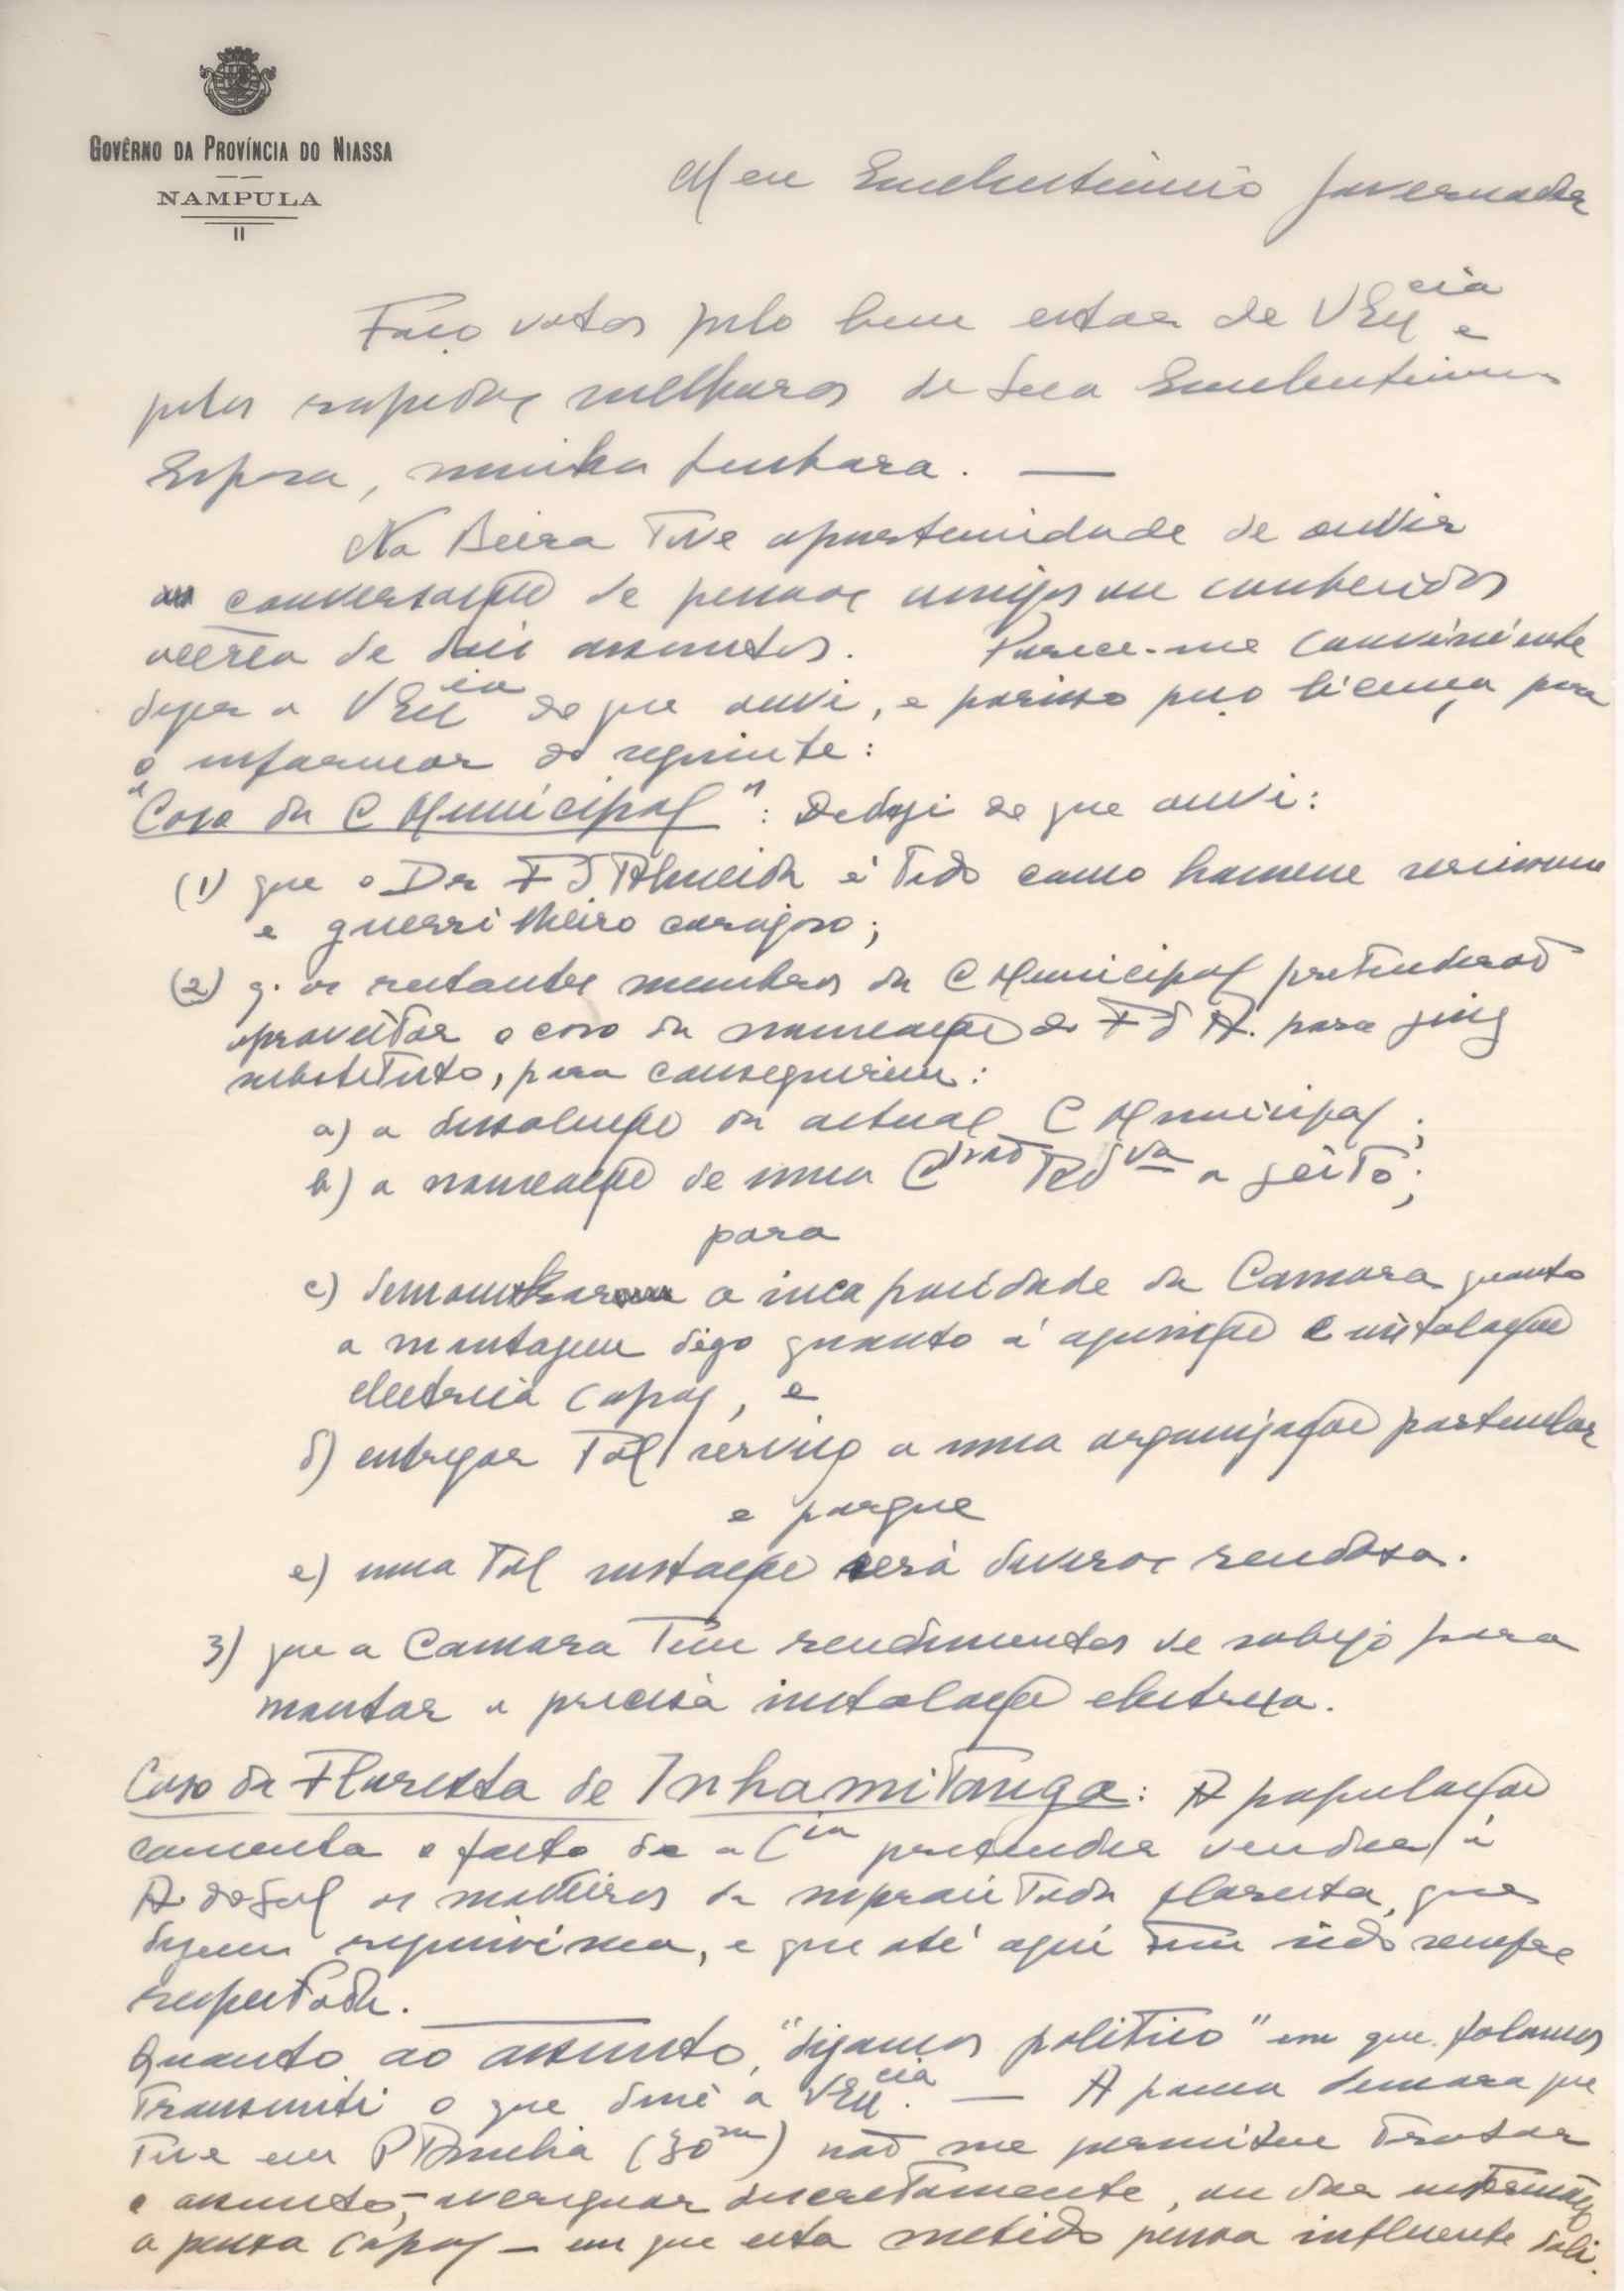 GOVÊRNO DA PROVÍNCIA DO NIASSA
NAMPULA
Meu Excelentissimo Governador
Faço votos pelo bem estar de VExcia e
pelas rapidas melhoras de Sua Excelentissima
Esposa, minha Senhora. —
Na Beira tive oportunidade de ouvir
conversação de pessoas amigas ou conhecidas
acêrca de dois assuntos. Parece-me conveniente
dizer a VExcia do que ouvi, e porisso peço licença para
o informar do seguinte:
"Caso da C Municipal": Deduzi do que ouvi:
(1) que o Dr F d'Almeida é tido como homem
e guerrilheiro corajoso;
(2) q. os restantes membros da C Municipal pretenderão
aproveitar o caso da nomeação do F d A. para juiz
substituto, para conseguirem:
a) a dissolução da actual C Municipal;
b) a nomeação de uma a geito;
para
c) a incapacidade da Camara quanto
a montagem digo quanto á aquisição e instalação
electrica capaz, e
d) entregar tal serviço a uma organização particular
e porque
e) uma tal será deveras rendosa.
3) que a Camara têm rendimentos de sobejo para
montar a precisa instalação electrica.
Caso da Floresta de Inhamitanga: A população
comenta o facto de a Cia pretender vender á
A do Sul as madeiras da supracitada floresta, que
dizem riquissima, e que até aqui tem sido sempre
respeitada.
Quanto ao assunto, "digamos politico" em que falamos
transmiti o que disse a VExcia. — A pouca demora que
tive em P Amelia (30m) não me permitiu tratar
o assunto, - averiguar discretamente, ou dar
a pessoa capaz — em que esta metido pessoa influente dali.